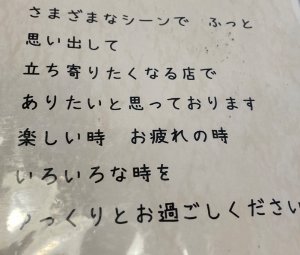 さまざまなシーンで　ふっと
思い出して
立ち寄りたくなる店で
ありたいと思っております
楽しい時　お疲れの時
いろいろな時を
ゆっくりとお過ごしください